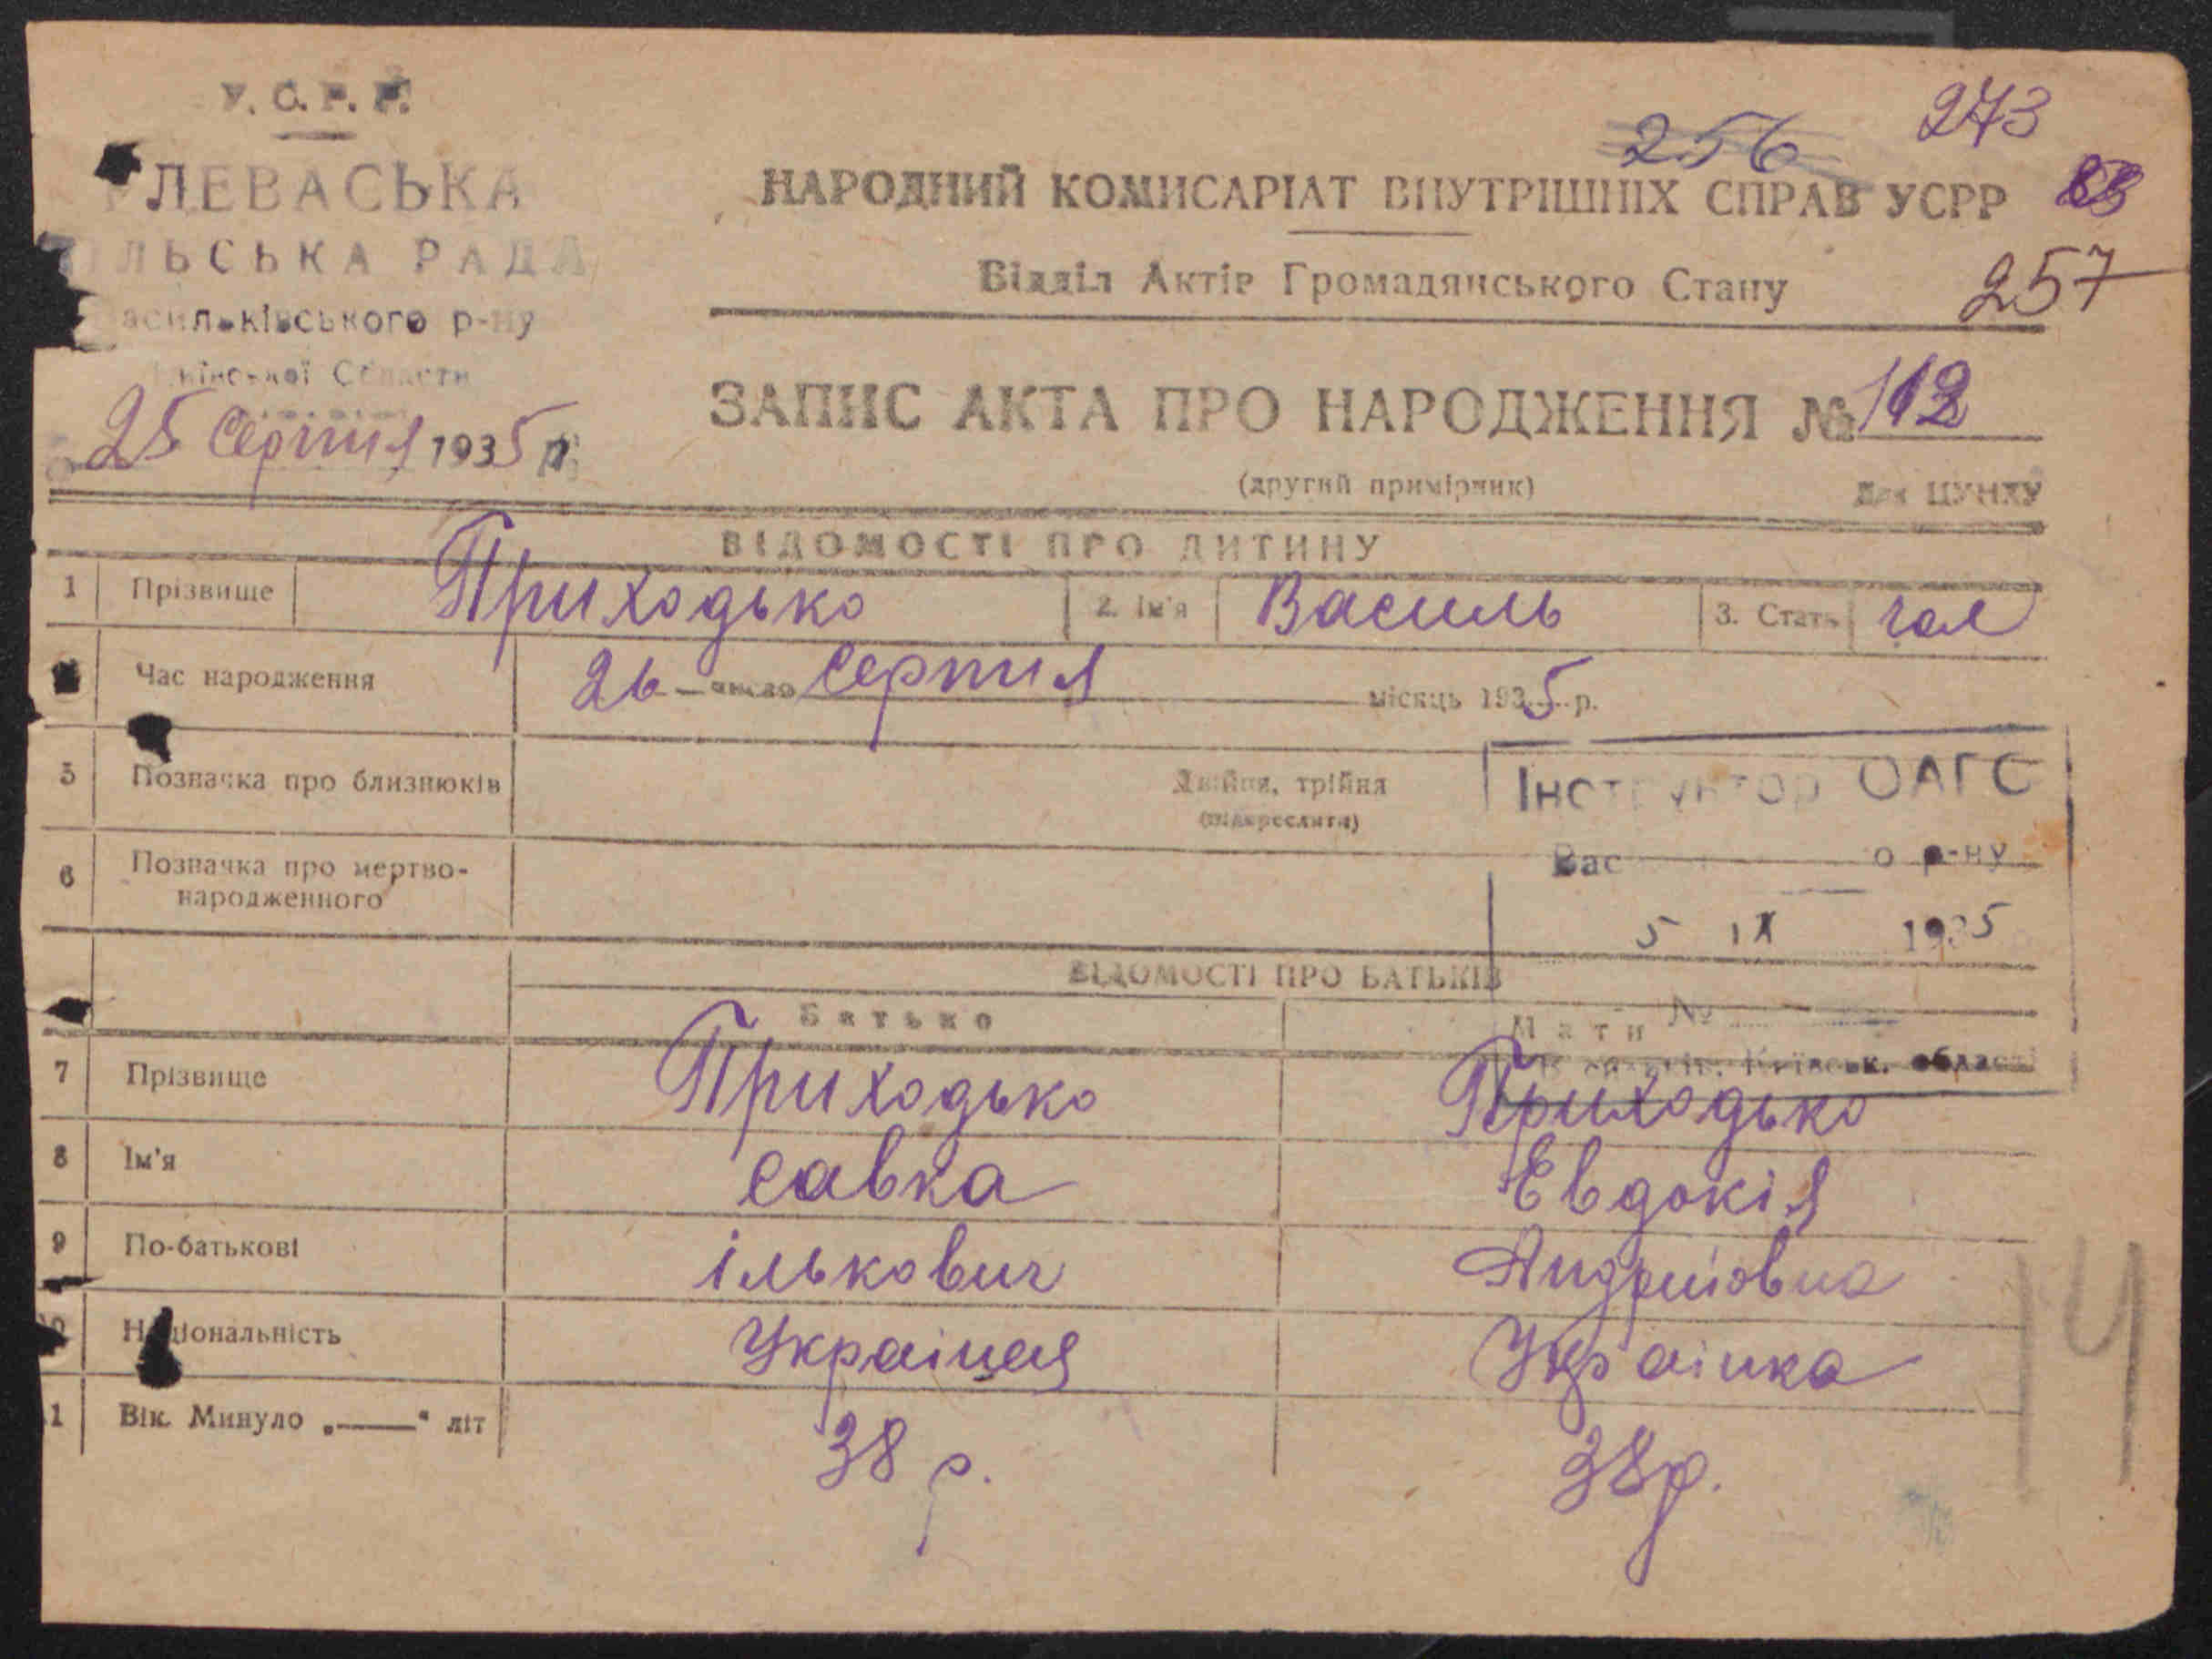 У. С. Р. Р.
ЛЕВАСЬКА
ІЛЬСЬКА РАДА
асильківського р-ну
25 Серпня 1935 р.
256
273
88
НАРОДНИЙ КОМІСАРІАТ ВНУТРІШНІХ СПРАВ УСРР
Відділ Актів Громадянського Стану
257
ЗАПИС АКТА ПРО НАРОДЖЕННЯ № 112
(другий примірник)
Для ЦУНХУ
ВІДОМОСТІ ПРО ДИТИНУ
1 Прізвище Приходько 2. Ім'я Василь 3. Стать чол
Час народження 26 число Серпня місяць 1935 р.
5 Позначка про близнюків Двійня, трійня
(підкреслити)
Інструктор ОАГС
Вас о р-ну
5 IX 1935
6 Позначка про мертво-
народженного
ВІДОМОСТІ ПРО БАТЬКІВ
Батько Мати
№
Київськ. області
7 Прізвище Приходько Приходько
8 Ім'я Савка Евдокія
9 По-батькові ількович Андріївна
10 Національність Україцея Українка
11 Вік. Минуло „——“ літ 38 р. 38 р.
14